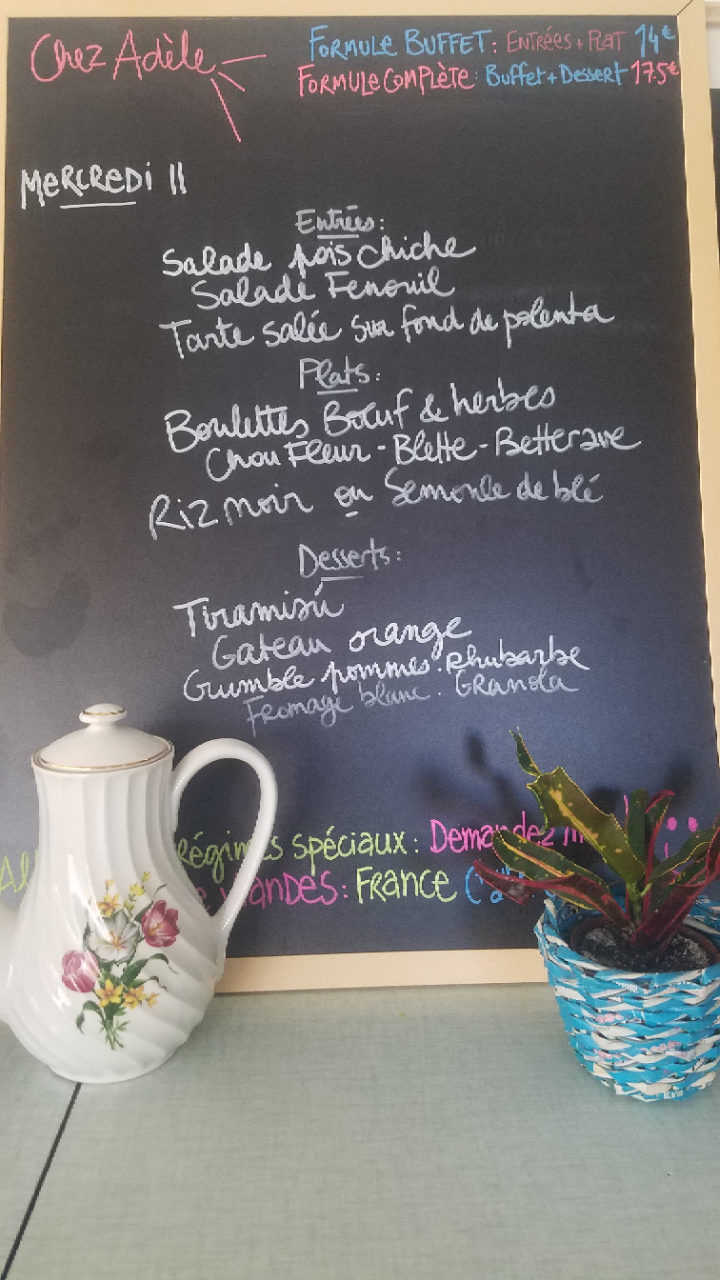 Chez Adèle
FORMULE BUFFET: ENTRÉES + PLAT 14€
FORMULE COMPLÈTE: Buffet + Dessert 17.5€
MERCREDI 11
Entrées:
Salade pois chiche
Salade Fenouil
Tarte salée sur fond de polenta
Plats:
Boulettes Bœuf & herbes
Chou Fleur - Blette - Betterave
Riz noir ou Semoule de blé
Desserts:
Tiramisù
Gateau orange
Crumble pommes. Rhubarbe
Fromage blanc. Granola
Régimes spéciaux: Demandez
VIANDES: FRANCE